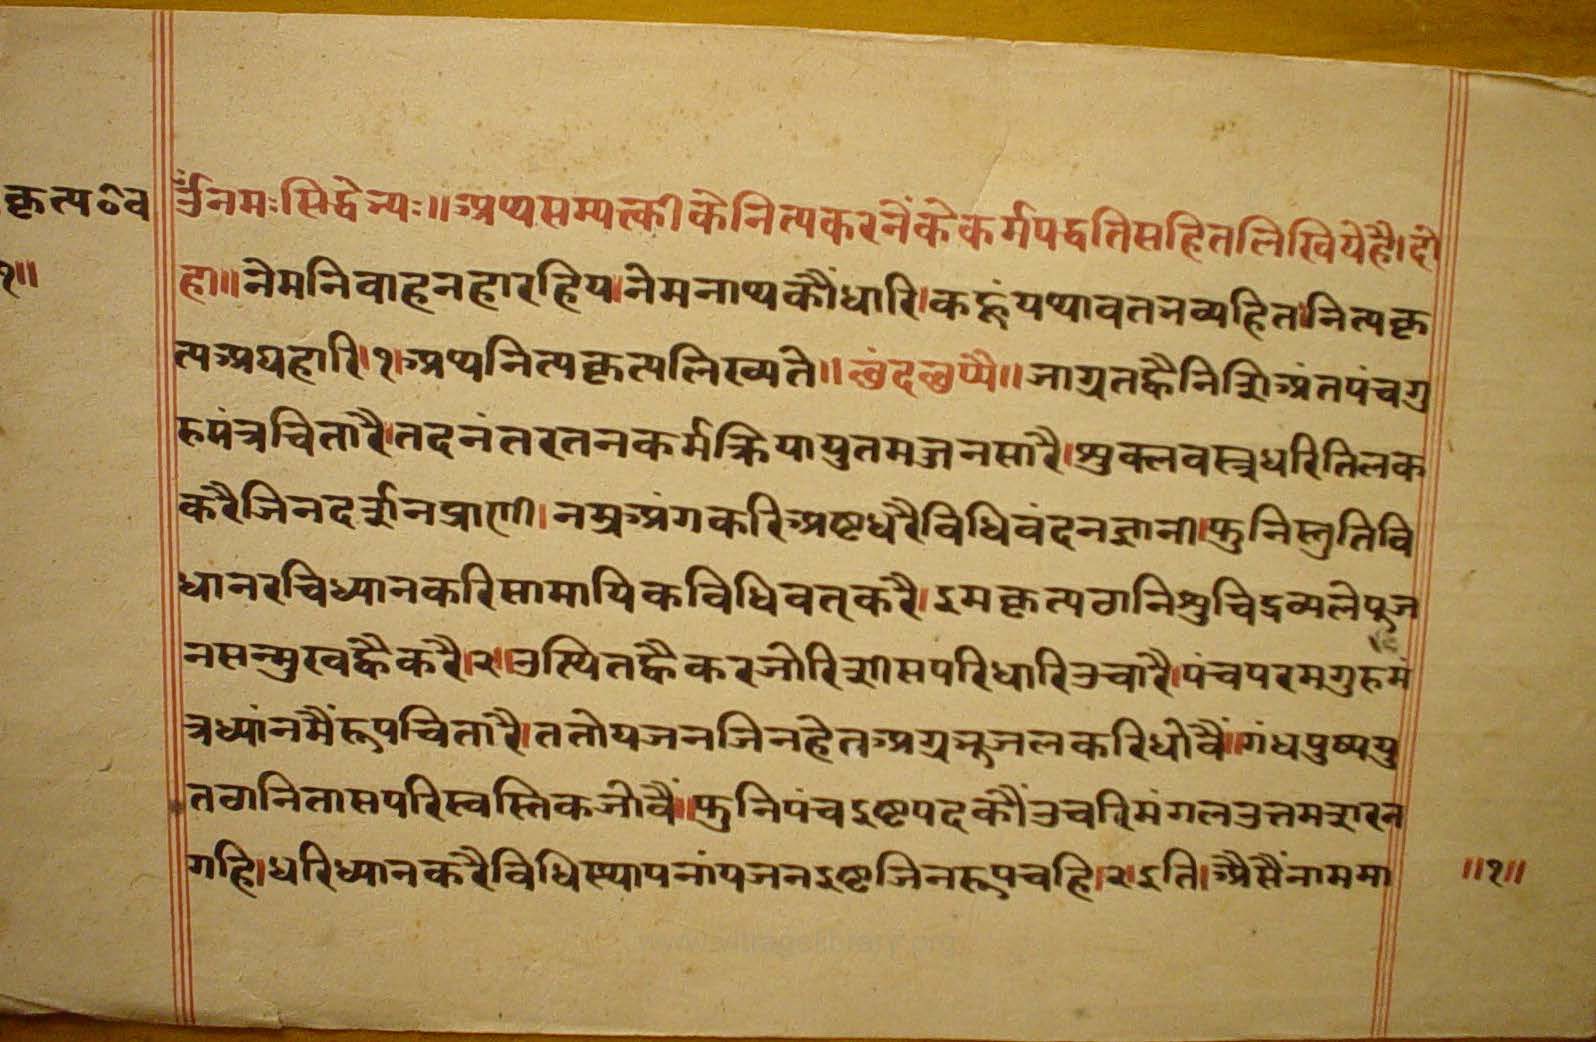 कृत्य०व
१॥
ॐनमःसिद्धेभ्यः॥अथसम्यक्तीकेनित्यकरनेंकेकर्मपद्धतिसहितलिखियेहै।दो
हा॥नेमनिवाहनहारहिय।नेमनाथकौंधारि।कहूंयथावतनव्यहित।नित्यकृ
त्यअघहारि।१।अथनित्यकृत्यलिख्यते॥छंदछप्पै॥जाग्रतह्वैनिशिअंतपंचगु
रुमंत्रचितारै।तदनंतरतनकर्मक्रियायुतमज्जनसारै।शुक्लवस्त्रधरितिलक
करैजिनदर्शनप्राणी।नम्रअंगकरिअष्टधरैविधिवंदनज्ञानी।फुनिस्तुतिवि
धानरचिध्यानकरिसामायिकविधिवत्करै।इमकृत्यठानिशुचिद्रव्यलेपूज
नसन्मुखह्वैकरै।२।उत्थितह्वैकरजोरिशीसपरिधारिउचारै।पंचपरमगुरुमं
त्रध्यांनमैंरूपचितारै।ततोयजनजिनहेतअग्रभूजलकरिधोवैं॥गंधपुष्पयु
तठानितासपरिस्वस्तिकजोवैं॥फुनिपंचइष्टपदकौंउचरिमंगलउत्तमशरन
गहि।धरिध्यानकरैविधिस्थापनांयजनइष्टजिनरूपचहि।२।इति।अैसैंनाममा
॥१॥
www.vitragelibrary.org